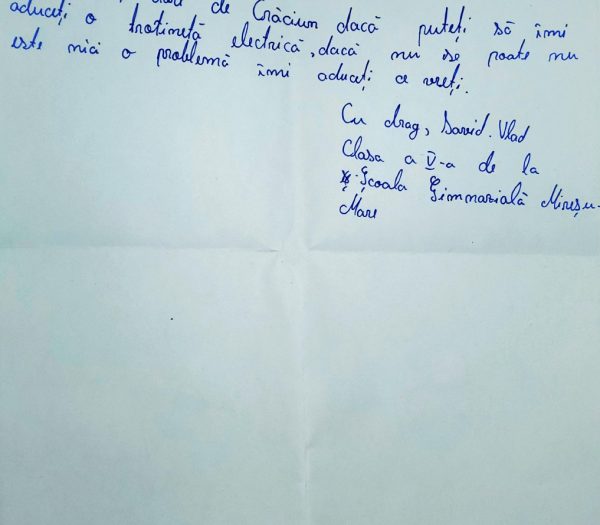 de Crăciun dacă puteți să îmi
aduceți o trotinetă electrică, dacă nu se poate nu
este nici o problemă îmi aduceți ce vreți.
Cu drag, David. Vlad
Clasa a V-a de la
Școala Gimnazială Mireșu-
Mare